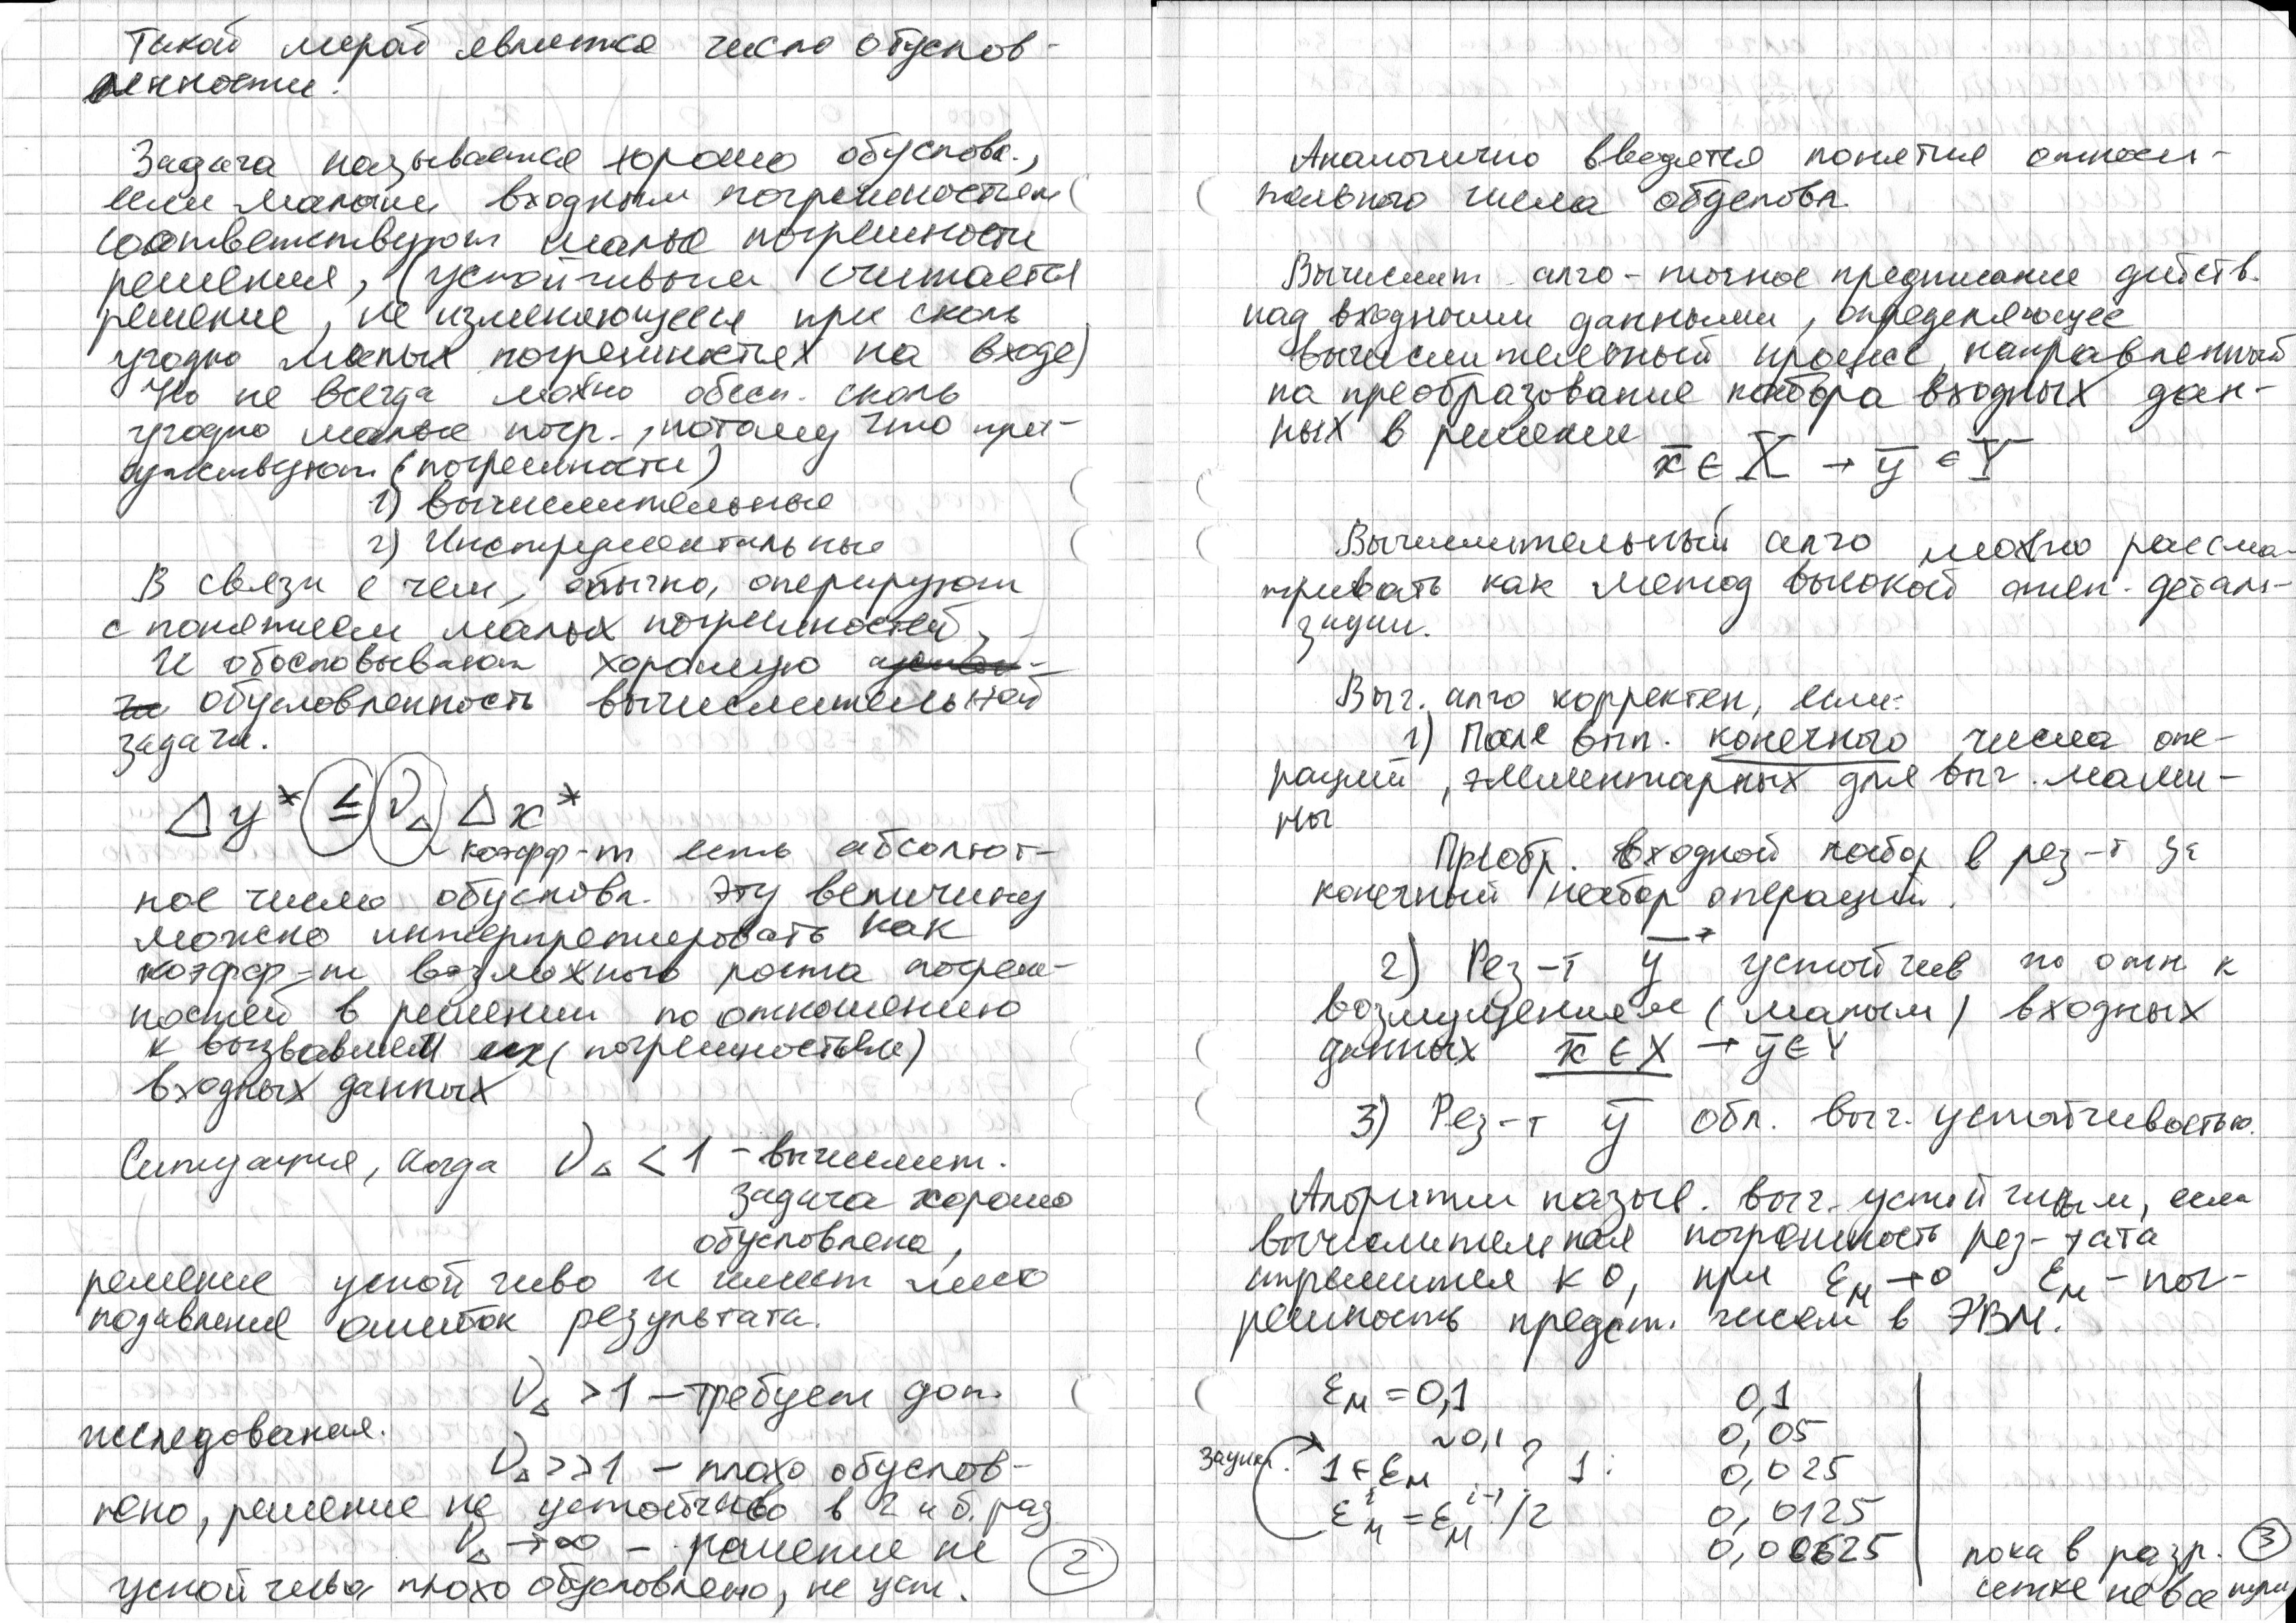 Такой мерой является число обуслов-
ленности.
Задача называется хорошо обусловл.,
если малым входным погрешностям
соответствуют малые погрешности
решения, (устойчивым считается
решение, не изменяющееся при сколь
угодно малых погрешностях на входе)
Но не всегда можно обесп. сколь
угодно малые погр., потому что при-
сутствуют (погрешности)
1) вычислительные
2) Инструментальные
В связи с чем, обычно, оперируют
с понятием малых погрешностей,
И обосновывают хорошую
обусловленность вычислительной
задачи.
Δy* ≤ ν_Δ Δx*
коэфф-т есть абсолют-
ное число обусловл. Эту величину
можно интерпретировать как
коэфф-т возможного роста погреш-
ностей в решении по отношению
к вызвавшем их (погрешностям)
входных данных
Ситуация, когда ν_Δ < 1 - вычислит.
задача хорошо
обусловлена,
решение устойчиво и имеет место
подавление ошибок результата.
ν_Δ > 1 - требует доп.
исследования.
ν_Δ >> 1 - плохо обуслов-
лено, решение не устойчиво в 2 и б. раз
ν_Δ → ∞ - решение не
устойчиво плохо обусловлено, не уст.
2
Аналогично вводятся понятия относи-
тельного числа обусловл.
Вычислит. алго - точное предписание действ.
над входными данными, определяющее
вычислительный процесс, направленный
на преобразование набора входных дан-
ных в решение
x̄ ∈ X̄ → ȳ ∈ Ȳ
Вычислительный алго можно рассма-
тривать как метод высокой степ. детали-
зации.
Выч. алго корректен, если:
1) После вып. конечного числа опе-
раций, элементарных для выч. маши-
ны
Преобр. входной набор в рез-т за
конечный набор операций.
2) Рез-т ȳ* устойчив по отн к
возмущениям (малым) входных
данных x̄ ∈ X → ȳ ∈ Y
3) Рез-т ȳ обл. выч. устойчивостью.
Алгоритм назыв. выч. устойчивым, если
вычислительная погрешность рез-тата
стремится к 0, при ε_м → 0 ε_м - пог-
решность предст. чисел в ЭВМ.
ε_м = 0,1
~0,1
зацикл. 1 + ε_м ? 1:
ε_м^i = ε_м^{i-1} / 2
0,1
0,05
0,025
0,0125
0,00625
пока в разр.
сетке не все нули
3